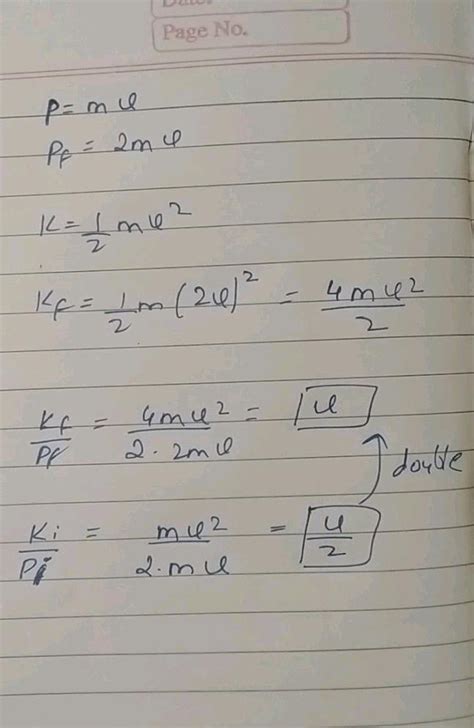 Date.
Page No.
P = mv
Pf = 2mv
K = 1/2 mv²
Kf = 1/2 m(2v)² = 4mv²/2
Kf/Pf = 4mv²/2·2mv = v
double
Ki/Pi = mv²/2·mv = v/2